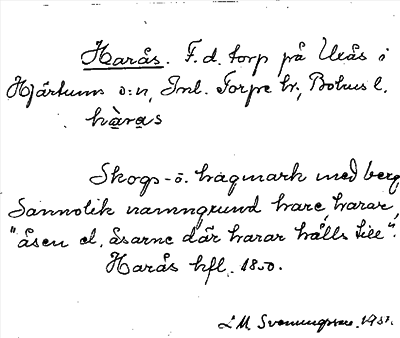 Harås. F. d. torp på Uxås i
Hjärtums s:n, Inl. Torpe hr., Bohus l.
hàras
Skogs- o. hagmark med berg.
Sannolik namngrund hare, harar,
"åsen el. åsarne där harar hålls till".
Harås hfl. 1850.
L M Svenungsson. 1931.